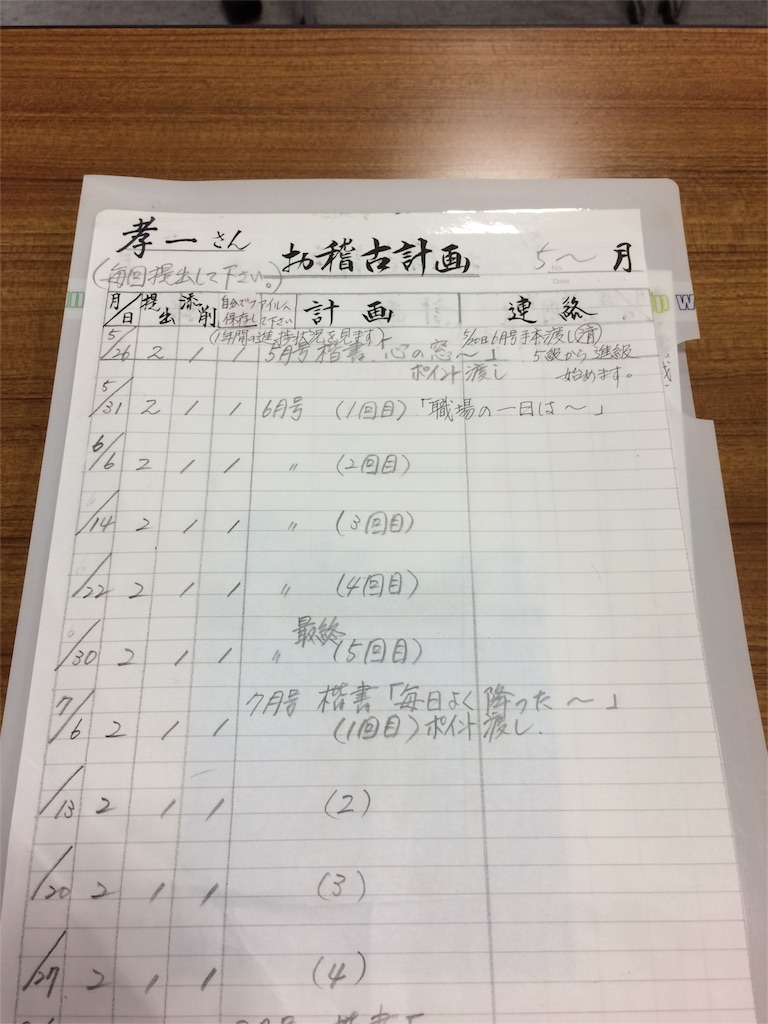 孝一さん お稽古計画 5〜月
(毎回提出して下さい。)
月/日 提出 添削 自分でファイルへ保存して下さい 計画 連絡
(1年間の進捗状況を見ます) 5/20日6月号手本渡し(済)
5/26 2 1 1 5月号楷書「心の窓〜」 5級から進級
ポイント渡し 始めます。
5/31 2 1 1 6月号 (1回目)「職場の一日は〜」
6/6 2 1 1 〃 (2回目)
/14 2 1 1 〃 (3回目)
/22 2 1 1 〃 (4回目)
最終
/30 2 1 1 〃 (5回目)
7月号 楷書「毎日よく降った〜」
7/6 2 1 1 (1回目)ポイント渡し.
/13 2 1 1 (2)
/20 2 1 1 (3)
/27 2 1 1 (4)